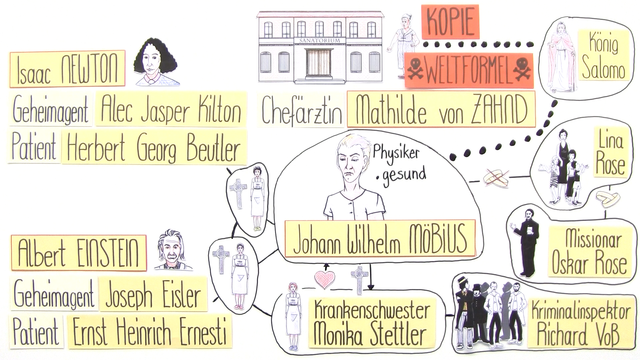 Isaac NEWTON
Geheimagent Alec Jasper Kilton
Patient Herbert Georg Beutler
SANATORIUM
Chefärztin Mathilde von ZAHND
KOPIE
WELTFORMEL
König
Salomo
Physiker
• gesund
Johann Wilhelm MÖBIUS
Lina
Rose
Missionar
Oskar Rose
Albert EINSTEIN
Geheimagent Joseph Eisler
Patient Ernst Heinrich Ernesti
Krankenschwester
Monika Stettler
Kriminalinspektor
Richard Voß